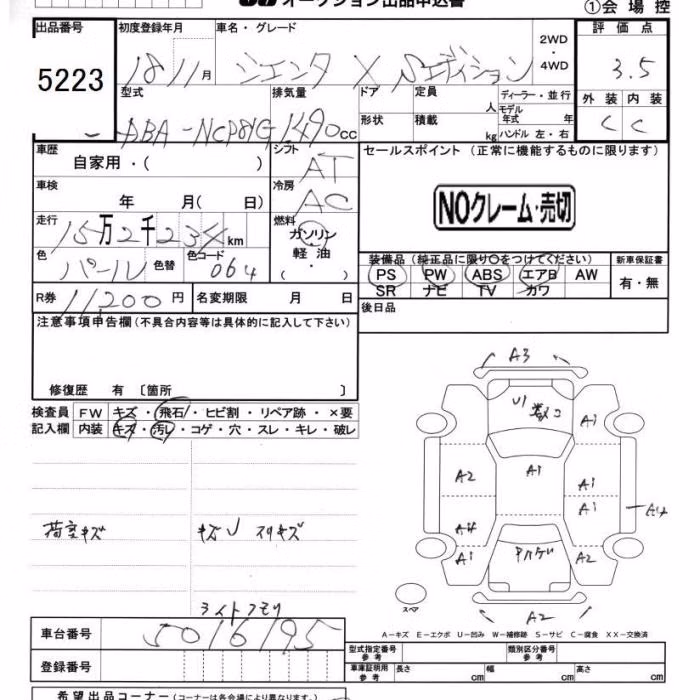 オークション出品申込書
①会場控
出品番号 初度登録年月 車名・グレード 評価点
5223 18 11月 シエンタ X Sエディション 2WD・4WD 3.5
型式 排気量 ドア 定員 人 ディーラー・並行 外装 内装
DBA-NCP81G 1490cc 形状 積載 kg モデル年式 年 ハンドル 左・右 C C
車歴 自家用・( ) シフト AT セールスポイント (正常に機能するものに限ります)
車検 年 月( 日) 冷房 AC
NOクレーム・売切
走行 15万2千234km 燃料 ガソリン・軽油・( )
色 パール 色替 色コード 064
装備品 (純正品に限り○をつけてください) 新車保証書
PS PW ABS エアB AW 有・無
SR ナビ TV カワ
R券 11,200円 名変期限 月 日 後日品
注意事項申告欄(不具合内容等は具体的に記入して下さい)
修復歴 有 〔箇所 〕
検査員 FW キズ・飛石・ヒビ割・リペア跡・×要
記入欄 内装 キズ・汚レ・コゲ・穴・スレ・キレ・破レ
荷室キズ
キズU スリキズ
ライトクモリ
A3
U1
A1
A2 A1 A1
A1
A4 A4
A1 A2
スペア A2
A-キズ E-エクボ U-凹み W-補修跡 S-サビ C-腐食 XX-交換済
車台番号 5016195
登録番号
型式指定番号 参考 類別区分番号 参考
車庫証明用 参考 長さ cm 幅 cm 高さ cm
希望出品コーナー(コーナーは各会場により異なります。)